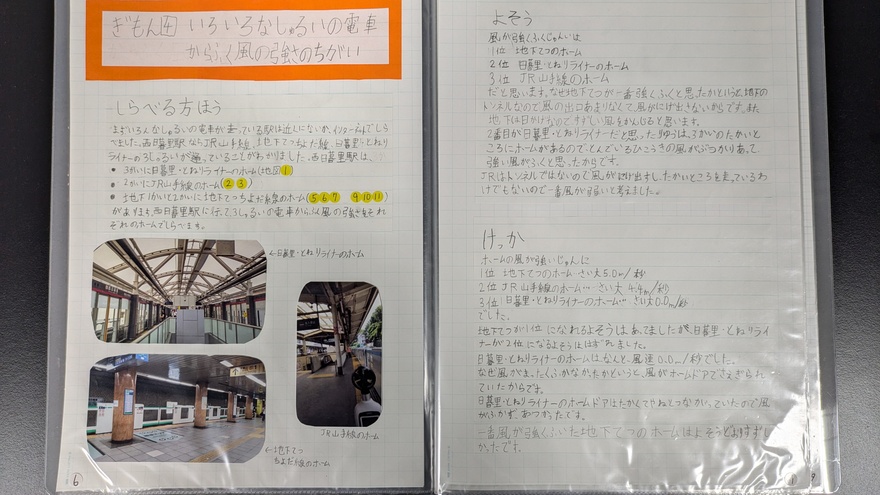 ぎもん④ いろいろなしゅるいの電車
からふく風の強さのちがい
しらべる方ほう
まずいろんなしゅるいの電車が走っている駅は近くにないか、インターネットでしら
べました。西日暮里駅ならJR山手線、地下てつちよだ線、日暮里・とねり
ライナーの3しゅるいが通っていることがわかりました。西日暮里駅は、
• 3かいに日暮里・とねりライナーのホーム(地図①)
• 2かいにJR山手線のホーム(② ③)
• 地下1かいと2かいに地下てつちよだ線のホーム(⑤⑥⑦ ⑨⑩⑪)
があります。西日暮里駅に行って3しゅるいの電車からふく風の強さをそれ
ぞれのホームでしらべます。
←日暮里・とねりライナーのホーム
JR山手線のホーム
←地下てつ
ちよだ線のホーム
⑥
よそう
風が強くふくじゅんいは
1位 地下てつのホーム
2位 日暮里・とねりライナーのホーム
3位 JR山手線のホーム
だと思います。なぜ地下てつが一番強くふくと思ったかというと、地下の
トンネルなので風の出口があまりなくて、風がにげ出さないからです。また
地下は日かげなのですずしい風をかんじると思います。
2番目が日暮里・とねりライナーだと思ったりゆうは、3かいのたかいと
ころにホームがあるので、とんでいるひこうきの風がぶつかりあって
強い風がふくと思ったからです。
JRはトンネルではないので風がにげ出すし、たかいところを走っているわ
けでもないので一番風が弱いと考えました。
けっか
ホームの風が強いじゅんに
1位 地下てつのホーム…さい大5.0m/秒
2位 JR山手線のホーム…さい大 4.4m/秒
3位 日暮里・とねりライナーのホーム…さい大0.0m/秒
でした。
地下てつが1位になれるよそうはあたりましたが、日暮里・とねりライ
ナーが2位になるよそうははずれました。
日暮里・とねりライナーのホームはなんと、風速0.0m/秒でした。
なぜ風がまったくふかなかったかというと、風がホームドアでさえぎられ
ていたからです。
日暮里・とねりライナーのホームドアはたかくてやねとつながっていたので風
がふかず、あつかったです。
一番風が強くふいた地下てつのホームはよそうどおりすずし
かったです。